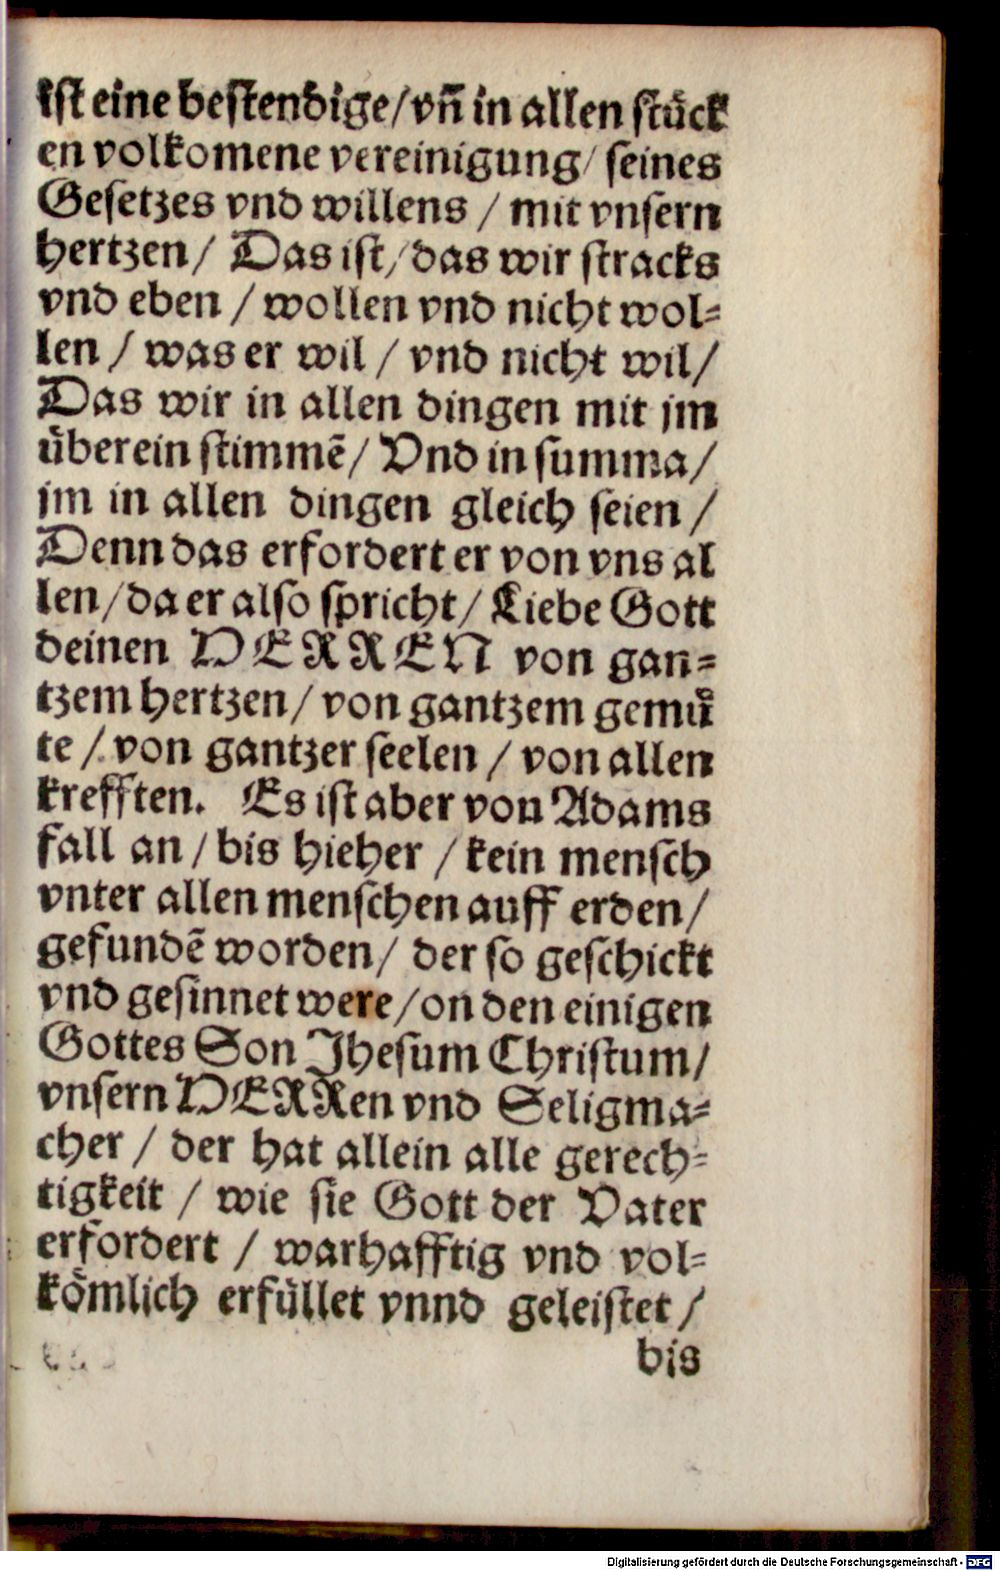 ist eine bestendige/vñ in allen stück
en volkomene vereinigung/ seines
Gesetzes vnd willens / mit vnsern
hertzen/ Das ist/das wir stracks
vnd eben / wollen vnd nicht wol⸗
len / was er wil / vnd nicht wil/
Das wir in allen dingen mit jm
überein stimmẽ/ Vnd in summa/
jm in allen dingen gleich seien /
Denn das erfordert er von vns al
len/da er also spricht/ Liebe Gott
deinen HERREN von gan⸗
tzem hertzen/ von gantzem gemuͤ
te / von gantzer seelen / von allen
krefften. Es ist aber von Adams
fall an / bis hieher / kein mensch
vnter allen menschen auff erden/
gefundẽ worden/ der so geschickt
vnd gesinnet were/on den einigen
Gottes Son Jhesum Christum/
vnsern HERRen vnd Seligma⸗
cher / der hat allein alle gerech⸗
tigkeit / wie sie Gott der Vater
erfordert / warhafftig vnd vol⸗
kömlich erfüllet vnnd geleistet /
bis
Digitalisierung gefördert durch die Deutsche Forschungsgemeinschaft - DFG